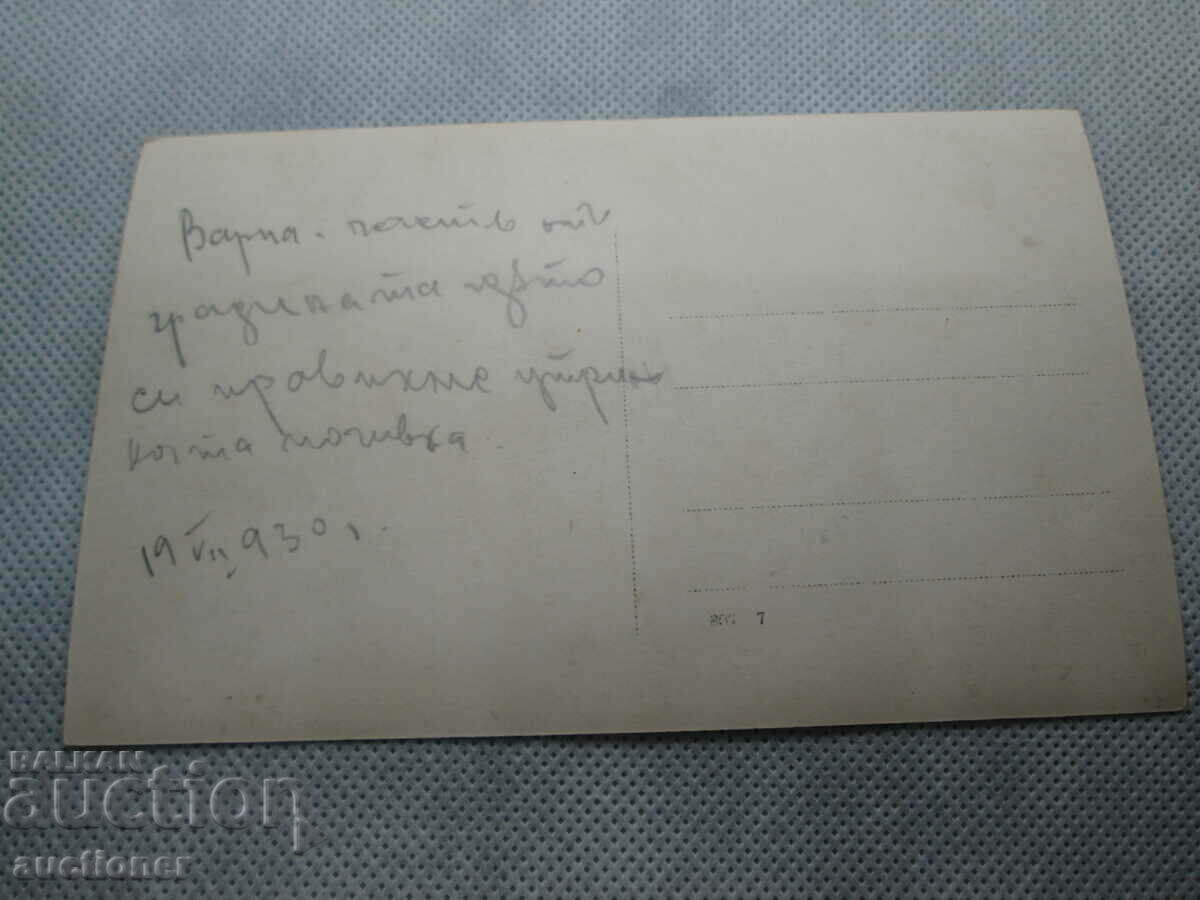 Варна. часть отъ
градината гдѣто
си правихме утрин
ната почивка.
19 VII 930 г.
7
BALKAN
auction
auctioner